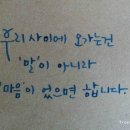 우리 사이에 오가는건
'말'이 아니라
'마음'이 었으면 합니다.